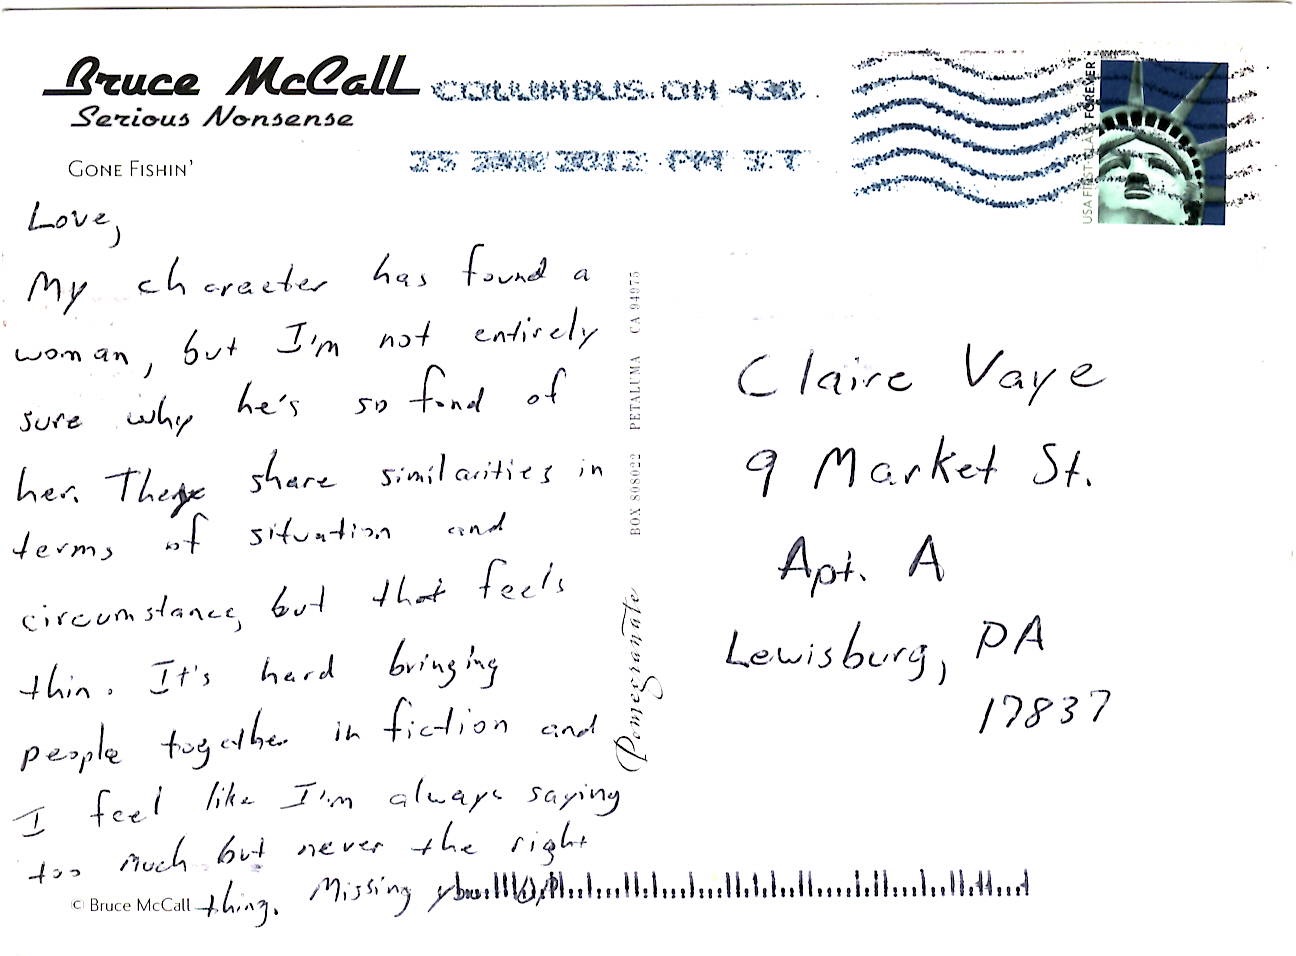 Bruce McCall
Serious Nonsense
GONE FISHIN'
COLUMBUS OH 430
25 JAN 2012 PM 3 T
USA FIRST-CLASS FOREVER
Love,
My character has found a
woman, but I'm not entirely
sure why he's so fond of
her. They share similarities in
terms of situation and
circumstance, but that feels
thin. It's hard bringing
people together in fiction and
I feel like I'm always saying
too much but never the right
thing. Missing you
© Bruce McCall
Pomegranate BOX 808022 PETALUMA CA 94975
Claire Vaye
9 Market St.
Apt. A
Lewisburg, PA
17837